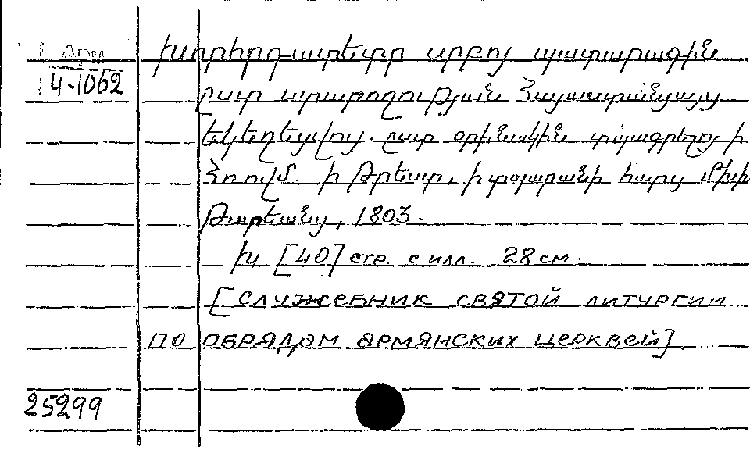 Арм
4-1062
Խորհրդատետր սրբոյ պատարագին
ըստ արարողութեան Հայաստանեայց
եկեղեցւոյ. ըստ օրինակին տպագրելոյ ի
Հռովմ. ի Թրեստ, ի տպարանի հարց Մխիթ
Թարեանց, 1803.
խ [40] стр. с илл. 28 см.
[СЛУЖЕБНИК СВЯТОЙ ЛИТУРГИИ
ПО ОБРЯДАМ АРМЯНСКИХ ЦЕРКВЕЙ]
25299